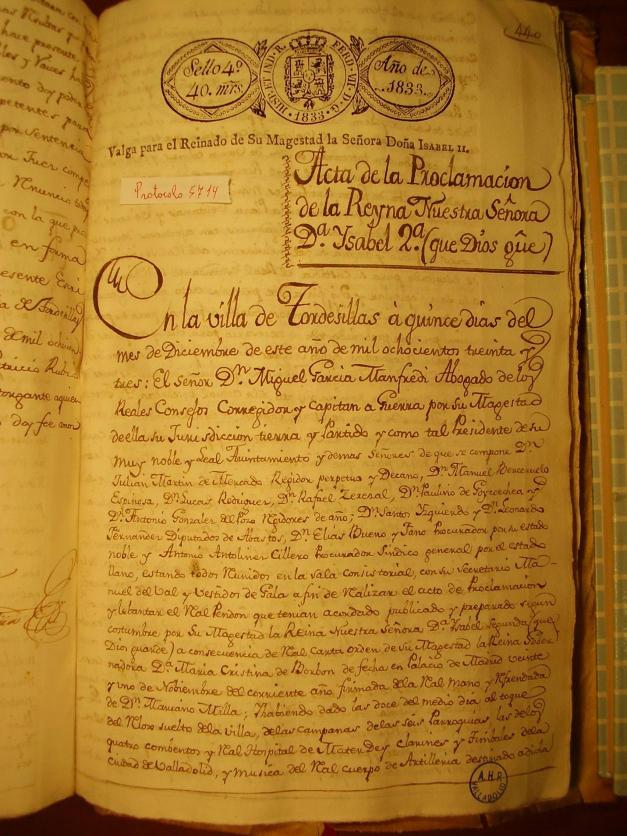 440
Sello 4º
40. mrs.
HISP. ET IND. R. FERD. VII. D. G.
1833
Año de
1833.
Valga para el Reinado de Su Magestad la Señora Doña ISABEL II.
Protocolo 5714
Acta de la Proclamacion
de la Reyna Nuestra Señora
Dª Ysabel 2ª (que Dios gûe)
En la villa de Tordesillas à quince dias del
mes de Diciembre de este año de mil ochocientos treinta y
tres: El señor Dn Miguel Garcia Manfredi Abogado de los
Reales Consejos Corregidor y Capitan a Guerra por su Magestad
de ella su Jurisdiccion tierra y Partido y como tal Presidente de su
muy noble y Leal Ayuntamiento y demas Señores de que se compone Dn
Julian Martin de Mercado Regidor perpetuo y Decano, Dn Manuel
Espinosa, Dn Lucas Rodriguez, Dn Rafael Dn Paulino de Goycoechea y
Dn Antonio Gonzalez del Pozo Regidores de año; Dn Santos Yzquierdo y Dn Leonardo
Fernandez Diputados de Abastos, Dn Elias Bueno y Fano Procurador por su estado
noble y Antonio Antoliner Cillero Procurador Sindico general por el estado
llano, estando todos reunidos en la sala consistorial, con su Secretario Ma-
nuel del Val y vestidos de Gala a fin de realizar el acto de Proclamacion
y lebantar el Real Pendon que tenian acordado publicado y preparado segun
costumbre por Su Magestad la Reina Nuestra Señora Dª Ysabel Segunda (que
Dios guarde) a consecuencia de Real carta orden de su Magestad la Reina Gober-
nadora Dª Maria Cristina de Borbon de fecha en Palacio de Madrid veinte
y uno de Nobiembre del corriente año firmada de la Real mano y Refrendada
de Dn Mariano Milla; y habiendo dado las doce del medio dia al toque
del Relox suelto de la villa, de las campanas de las seis Parroquias, las de los
quatro combentos y Real Hospital de Mater Dey clarines y Timbales de la
ciudad de Valladolid, y musica del Real cuerpo de Artilleria
A.H.P.
VALLADOLID